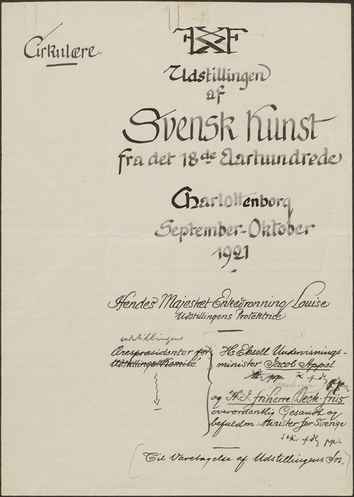 Cirkulære
Udstillingen
af
Svensk Kunst
fra det 18de Aarhundrede
Charlottenborg
September-Oktober
1921
Hendes Majestæt Enkedronning Louise
Udstillingens Protektrice
udstillingens
Ærespræsidenter for
H. Eksell. Undervisnings-
minister Jacob Appel
og H. E. friherre Beck-friis
overordentlig Gesandt og
befuldm. Minister for Sverige
Til Varetagelse af Udstillingens In.